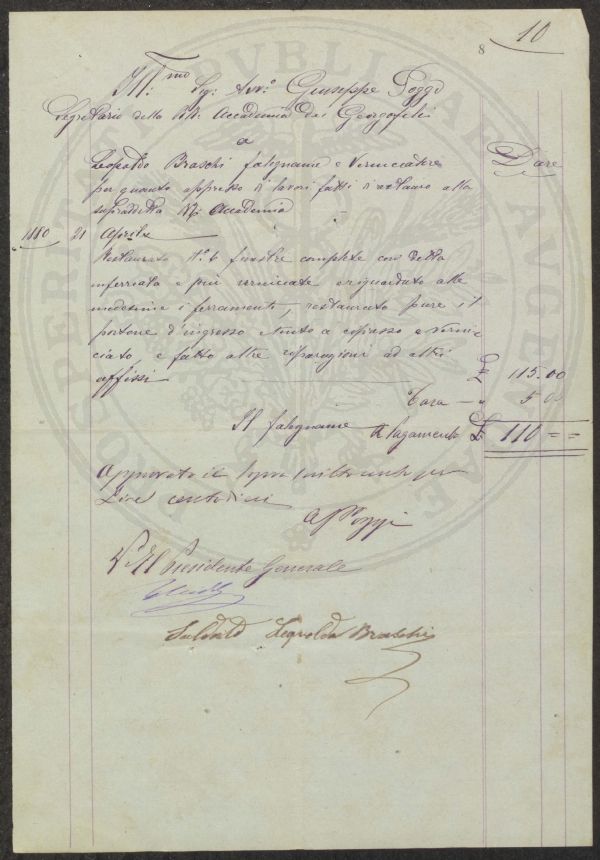 8
10
Ill:mo Sig: Avv:o Giuseppe Poggi
Segretario della R: Accademia dei Georgofili
a
Leopoldo Braschi falegname e Verniciatore
Dare
per quanto appresso di lavori fatti d'restauro alla
sopraddetta R: Accademia
1880 21 Aprile
Restaurato N:o 6 finestre complete con
inferriata e più verniciate e riguardato alle
medesime i ferramenti, restaurato pure il
portone d'ingresso e Verni
ciato, e fatto altre riparazioni ad altri
affissi £ 115.00
Tara — " 5 00
Il falegname Pagamento £ 110 = =
Approvato il per
Lire centodieci
Poggi
V° Il Presidente Generale
Saldato Leopoldo Braschi
PROSPERITATI PVBLICAE AVGENDAE